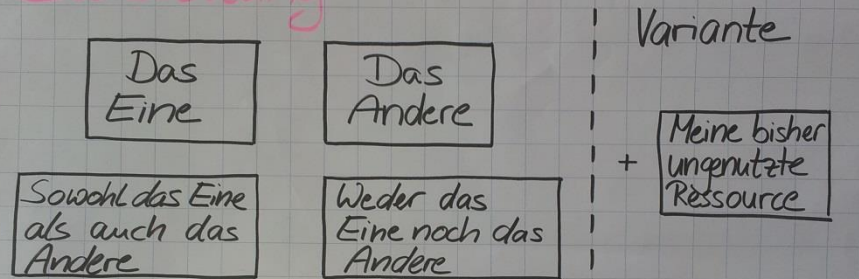 Das
Eine
Das
Andere
Sowohl das Eine
als auch das
Andere
Weder das
Eine noch das
Andere
Variante
+
Meine bisher
ungenutzte
Ressource